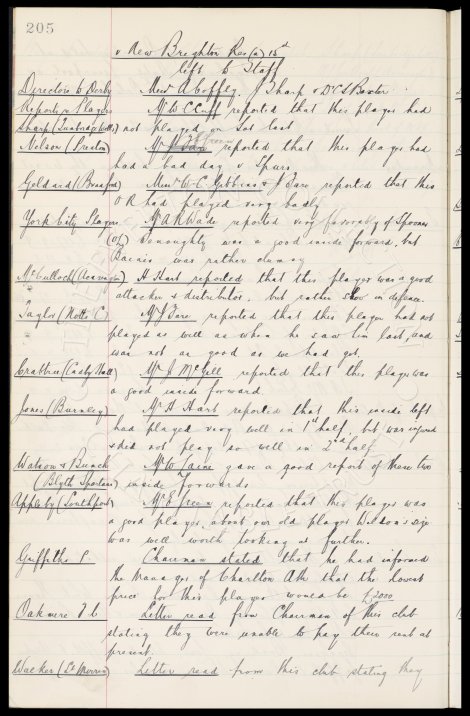 205
v New Brighton Res (a) 15th
left to Staff
Directors to Derby Messrs A Coffey, J Sharp & Dr C S Baxter.
Reports on Players Mr W C Cuff reported that this player had
Sharp (Tunbridge Wells) not played on Sat last
Nelson (Preston) Mr reported that this player had
had a bad day v Spurs.
Geldard (Bradford) Messrs W. C. Gibbins & J Fare reported that this
O R had played very badly
York City Players Mr A R Wade reported very favorably of Spooner
(of) Donoughty was a good inside forward, but
was rather clumsy
McCulloch (Accrington) H Hart reported that this player was a good
attacker & distributor, but rather slow in defence.
Taylor (Notts C) Mr J Fare reported that this player had not
played as well as when he saw him last, and
was not as good as we had got.
Crabtree (Hall) Mr J McGill reported that this player was
a good inside forward
Jones (Burnley) Mr H Hart reported that this inside left
had played very well in 1st half, but was injured
& did not play so well in 2nd half
Watson & Bunch Mr W gave a good report of these two
(Blyth Spartans) inside forwards
Appleby (Southport) Mr E Green reported that this player was
a good player, about our old player Weldon's size
was well worth looking at further.
Griffiths P. Chairman stated that he had informed
the Manager of Charlton Ath that the lowest
price for this player would be £2000
Oakmere F. C Letter read from Chairman of this club
stating they were unable to pay their rent at
present.
Walker (St Mirren) Letter read from this club stating they